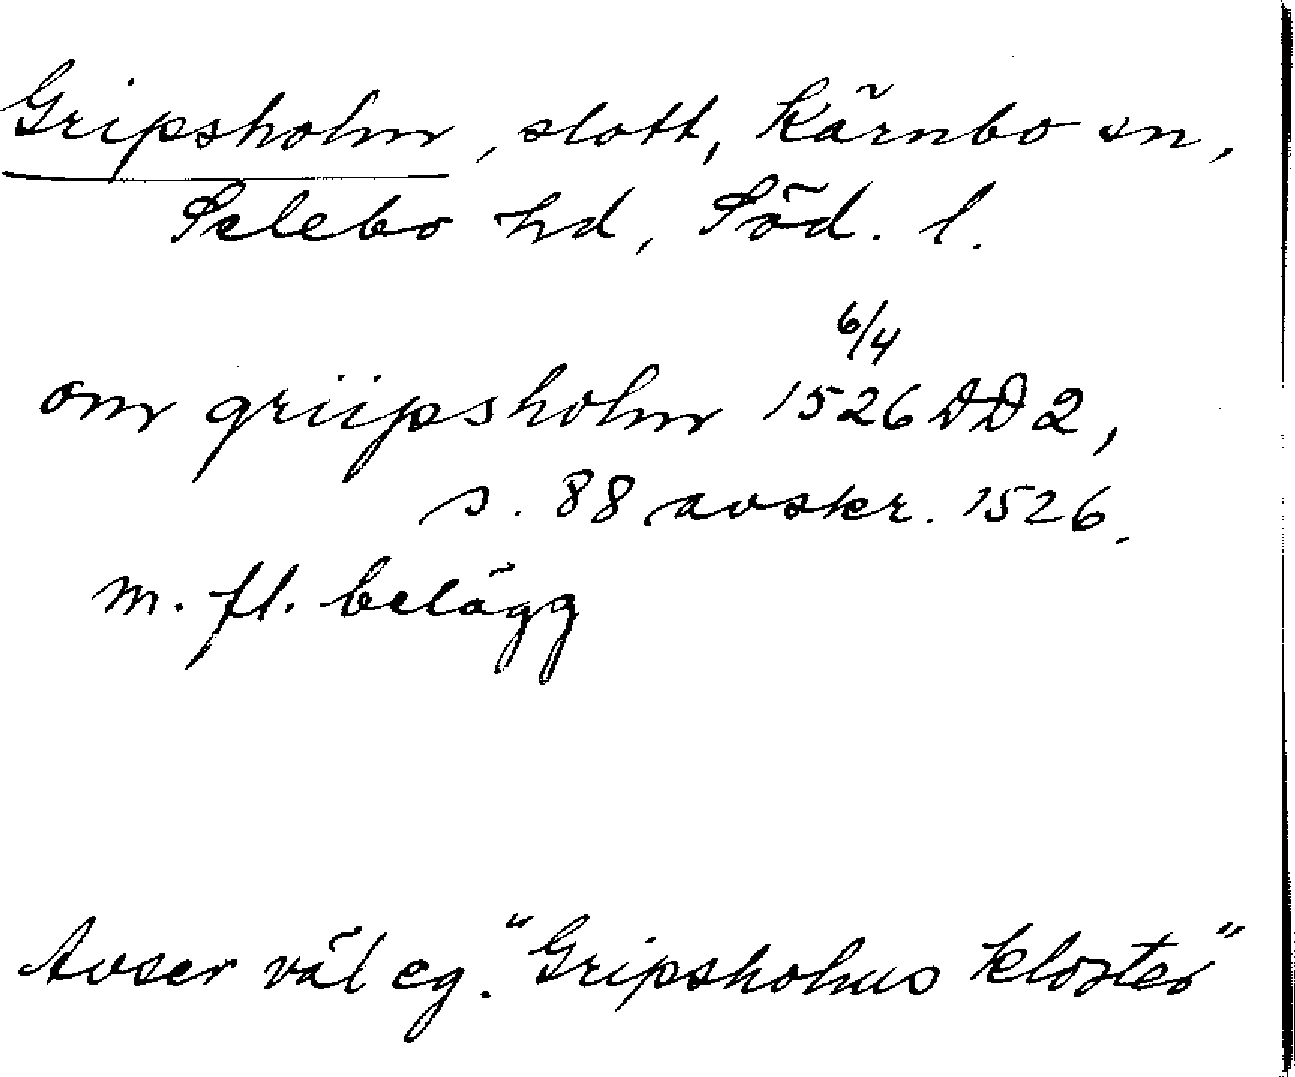 Gripsholm, slott, Kärnbo sn,
Selebo hd, Söd. l.
6/4
om griipsholm 1526 DD 2,
s. 88 avskr. 1526.
m. fl. belägg
Avser väl eg. "Gripsholms kloster"